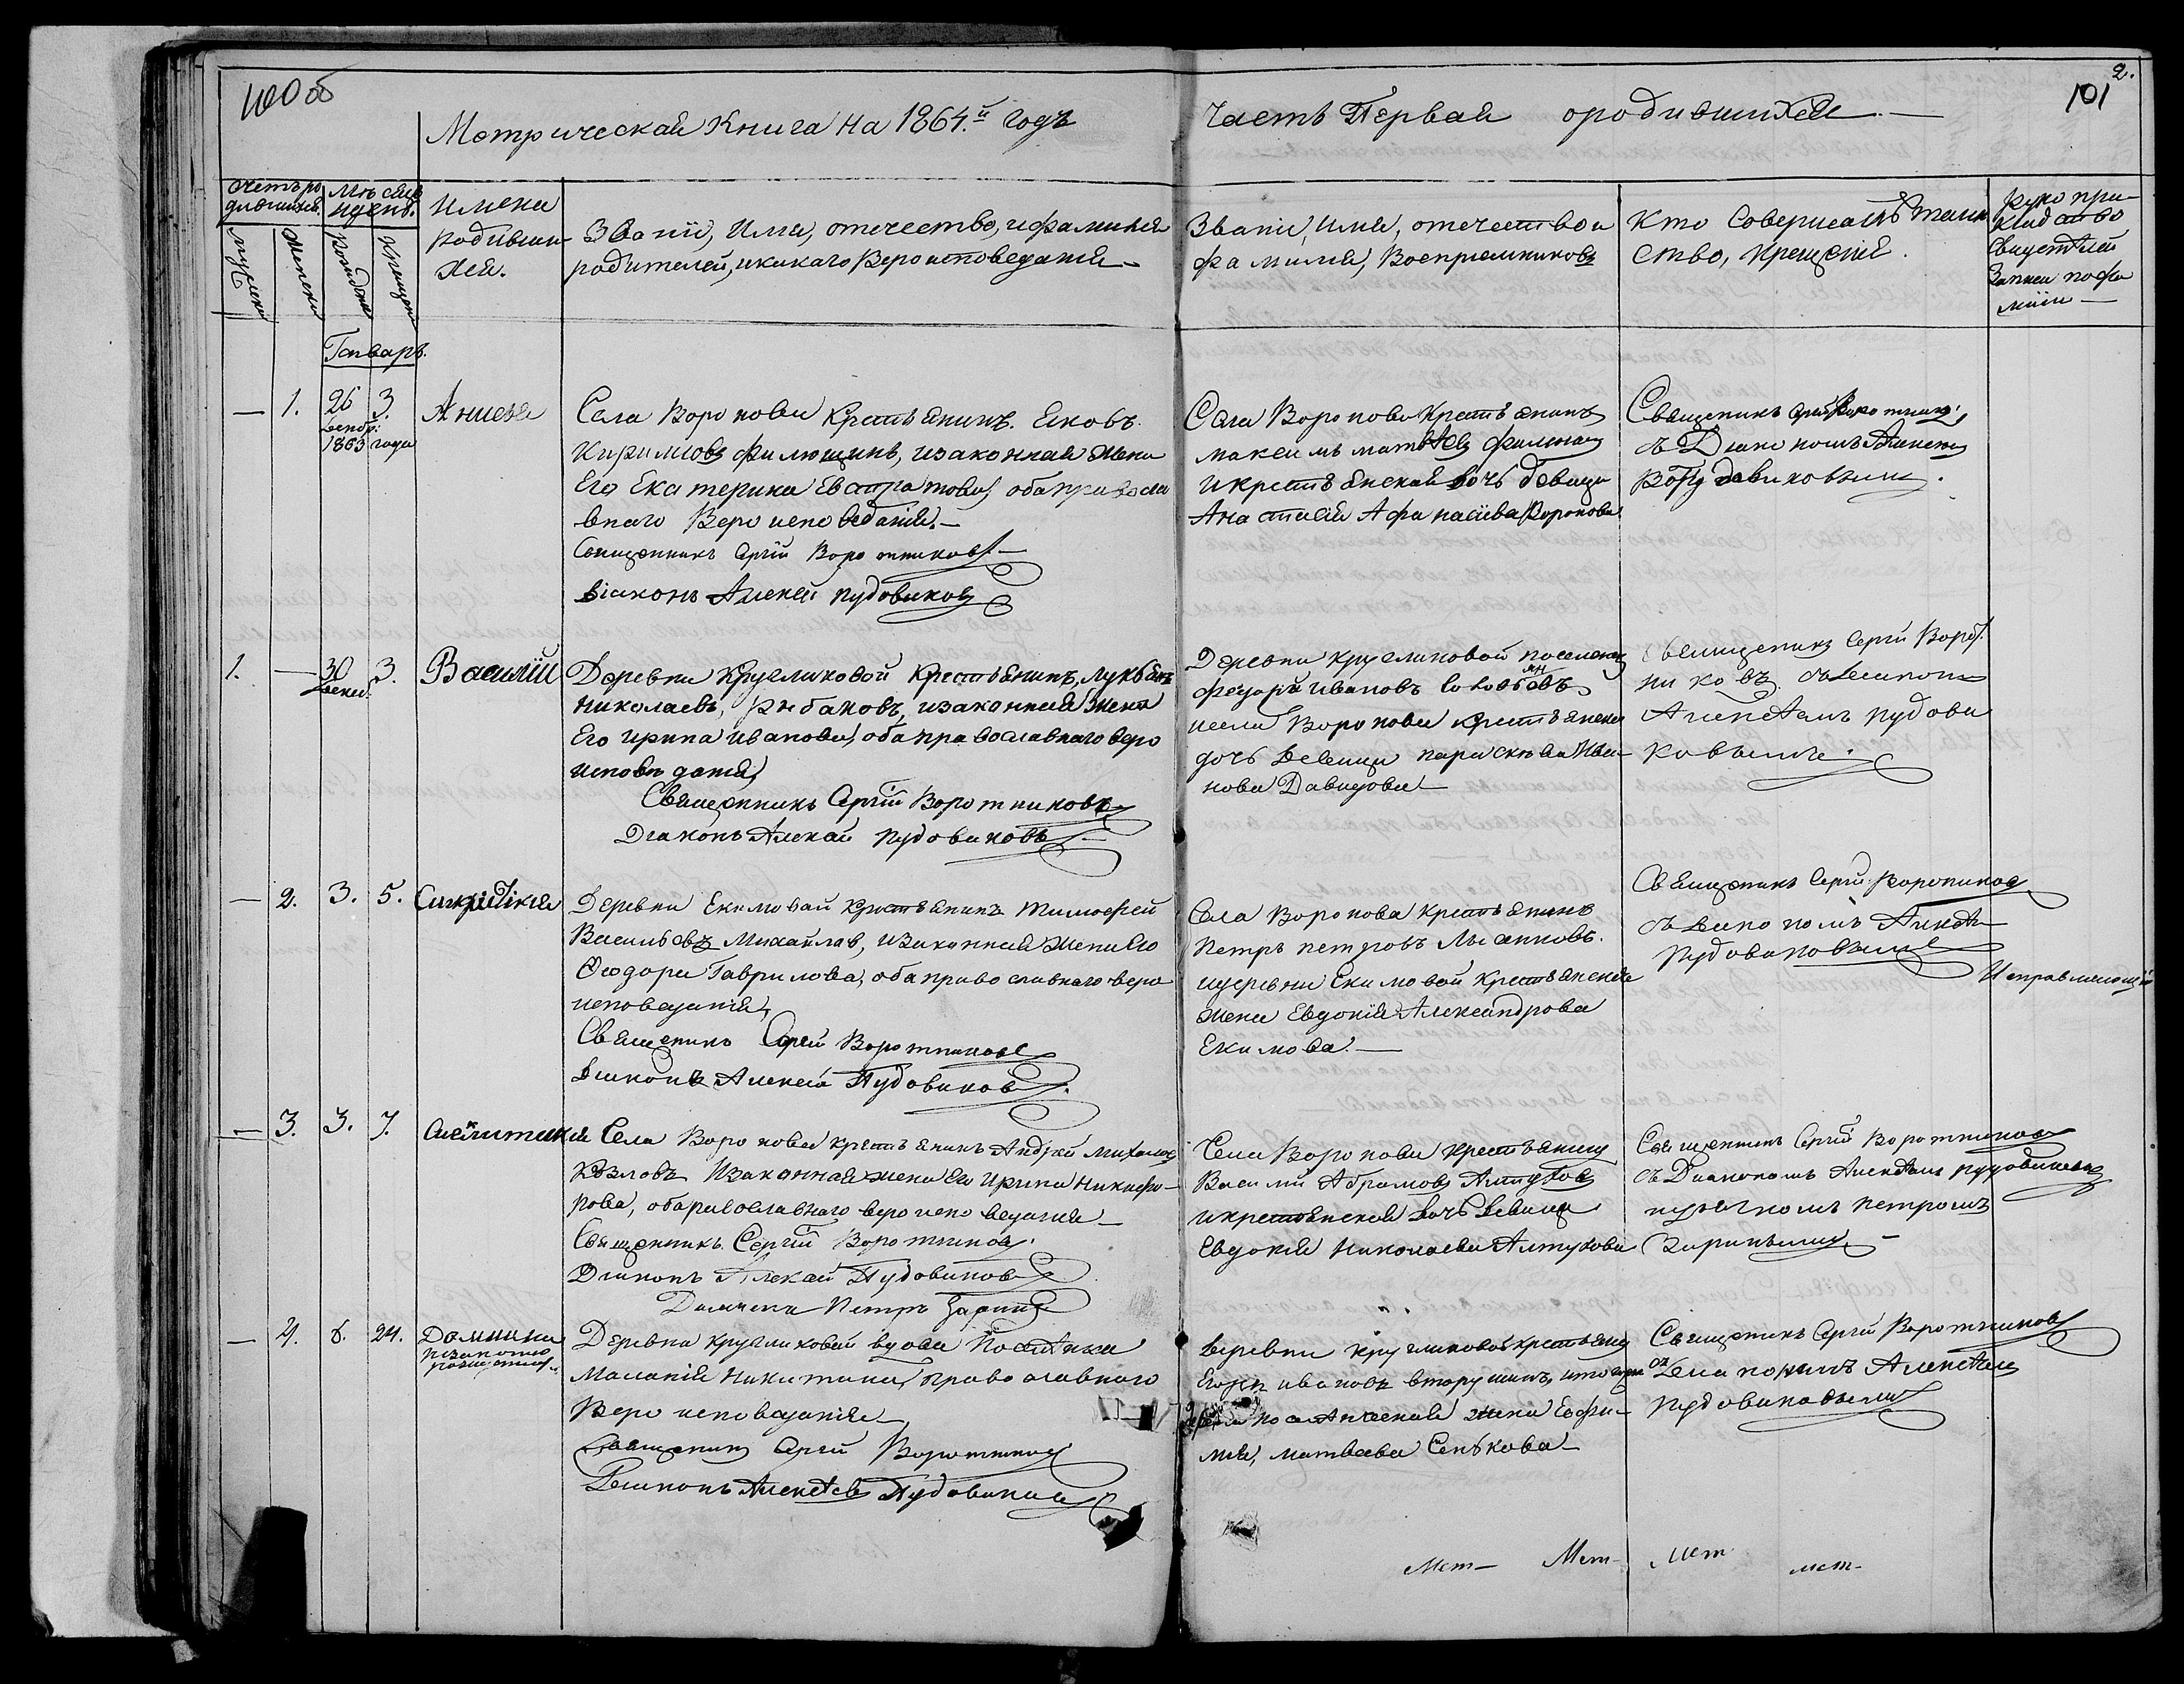 100об
Метрическая Книга на 1864.й годъ
Часть Первая ородившихся.—
2.
101
Счетъ ро
дившихся.
Мѣсяцъ
идень.
мужеска
женска
рожденiя
крещенiя
Имена
родивши
хся.
Званiи, Имя, отечество, ифамилiя
родителей, икакаго Вероисповеданiя—
Званiи, Имя, отечество и
фамилiя, Воспрiемниковъ
Кто Совершалъ таин
ство, крещенiя.
Руко при
кладство
Свидетѣлей
Записи пофа
милiи—
Генварь.
— 1. 26 3. Анисья
декабр:
1863 года
Села Воронова Крестьянинъ. Яковъ.
Кириловъ Филющинъ, изаконная жена
Его Екатерина Евстратова, оба правосла
внаго Вероисповеданiя.—
Священникъ Сергiй Воротниковъ—
дiаконъ Алексѣй пудовиковъ
Села Воронова Крестьянинъ
максимъ матвѣевъ
икрестьянская дочь девица
Анастасiя Афанасiева Воронова
Священникъ
съ Дiакономъ Алексѣемъ
Пудовиковымъ.
1. — 30 3. Василiй
декаб.
Деревни Кругликовой Крестьянинъ, лукьянъ
николаевъ, рыбаковъ, изаконная жена
Его ирина иванова, оба православнаго веро
исповѣданiя,
Священникъ Сергiй Воротниковъ
Дiаконъ Алексѣй пудовиковъ
Деревни кругликовой поселенецъ
федоръ ивановъ
исела Воронова крестьянская
дочь девица парасковья Ива
нова Давидова—
Священникъ Сергiй Ворот
никовъ. съдiакономъ
Алексѣемъ пудови
ковымъ.
— 2. 3. 5. Синклитикiя
Деревни Екимовай крестьянинъ тимофей
Васильевъ Михайлав, изаконная жена Его
Феодора Гаврилова, оба православнаго веро
исповеданiя,
Священникъ Сергiй Воротниковъ
дiаконъ Алексѣй Пудовиковъ.
Села Воронова крестьянинъ
петръ петровъ
идеревни Екимовой Крестьянская
жена Евдокiя Александрова
Екимова.—
Священникъ Сергiй Воротниковъ
съ дiакономъ Алексѣ
пудовиковымъ
Исправляющiй
— 3. 3. 7. Синклитикiя
Села Воронова крестьянинъ Андрей михайловъ
Козловъ Изаконная жена Его Ирина Никифо—
рова, обаправославнаго вероисповеданiя—
Священникъ. Сергiй Воротниковъ.
Дiаконъ Алексѣй Пудовиковъ
Дьячекъ Петръ Заринъ
Села Воронова крестьянинъ
Василiй Абрамовъ Алтуховъ
икрестьянская дочь девица
Евдокiя Николаева Алтухова
Священникъ Сергiй Воротниковъ
съ Дiакономъ Алексѣемъ пудовиковымъ
Петромъ
Заринымъ—
— 4. 6. 24. Домнина
незаконно
рожденная.
Деревни кругликовай вдова Посѣлянка
Маланiя Никитина, православнаго
Вероисповеданiя—
Священникъ Сергiй Воротниковъ
Дiаконъ Алексѣевъ Пудовиковъ
Деревни кругликовой крестьянинъ
Егоръ ивановъ итоже
деревни посѣлянская жена Ефи—
мiя, матвеева Сенькова—
Священникъ Сергiй Воротниковъ
съ Дiакономъ Алексѣемъ
пудовиковымъ
Мет— Мет— мет мет—